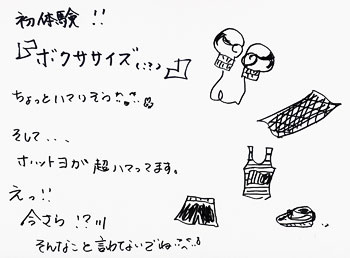 初体験!!
『ボクササイズ(!?)』
ちょっとハマりそう^^
そして...
ホットヨガ 超ハマってます。
えっ!!
今さら!?
そんなこと言わないでね^^